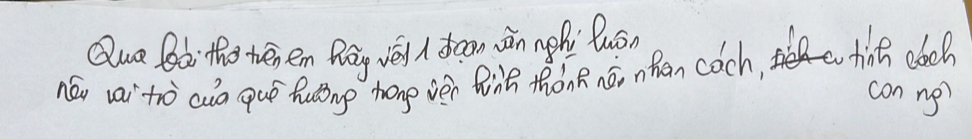 Qua bài thơ trên em hãy viết 1 đoạn văn nghị luận
nêu vai trò của quê hương trong việc hình thành nên nhân cách, tính cách
con ngi